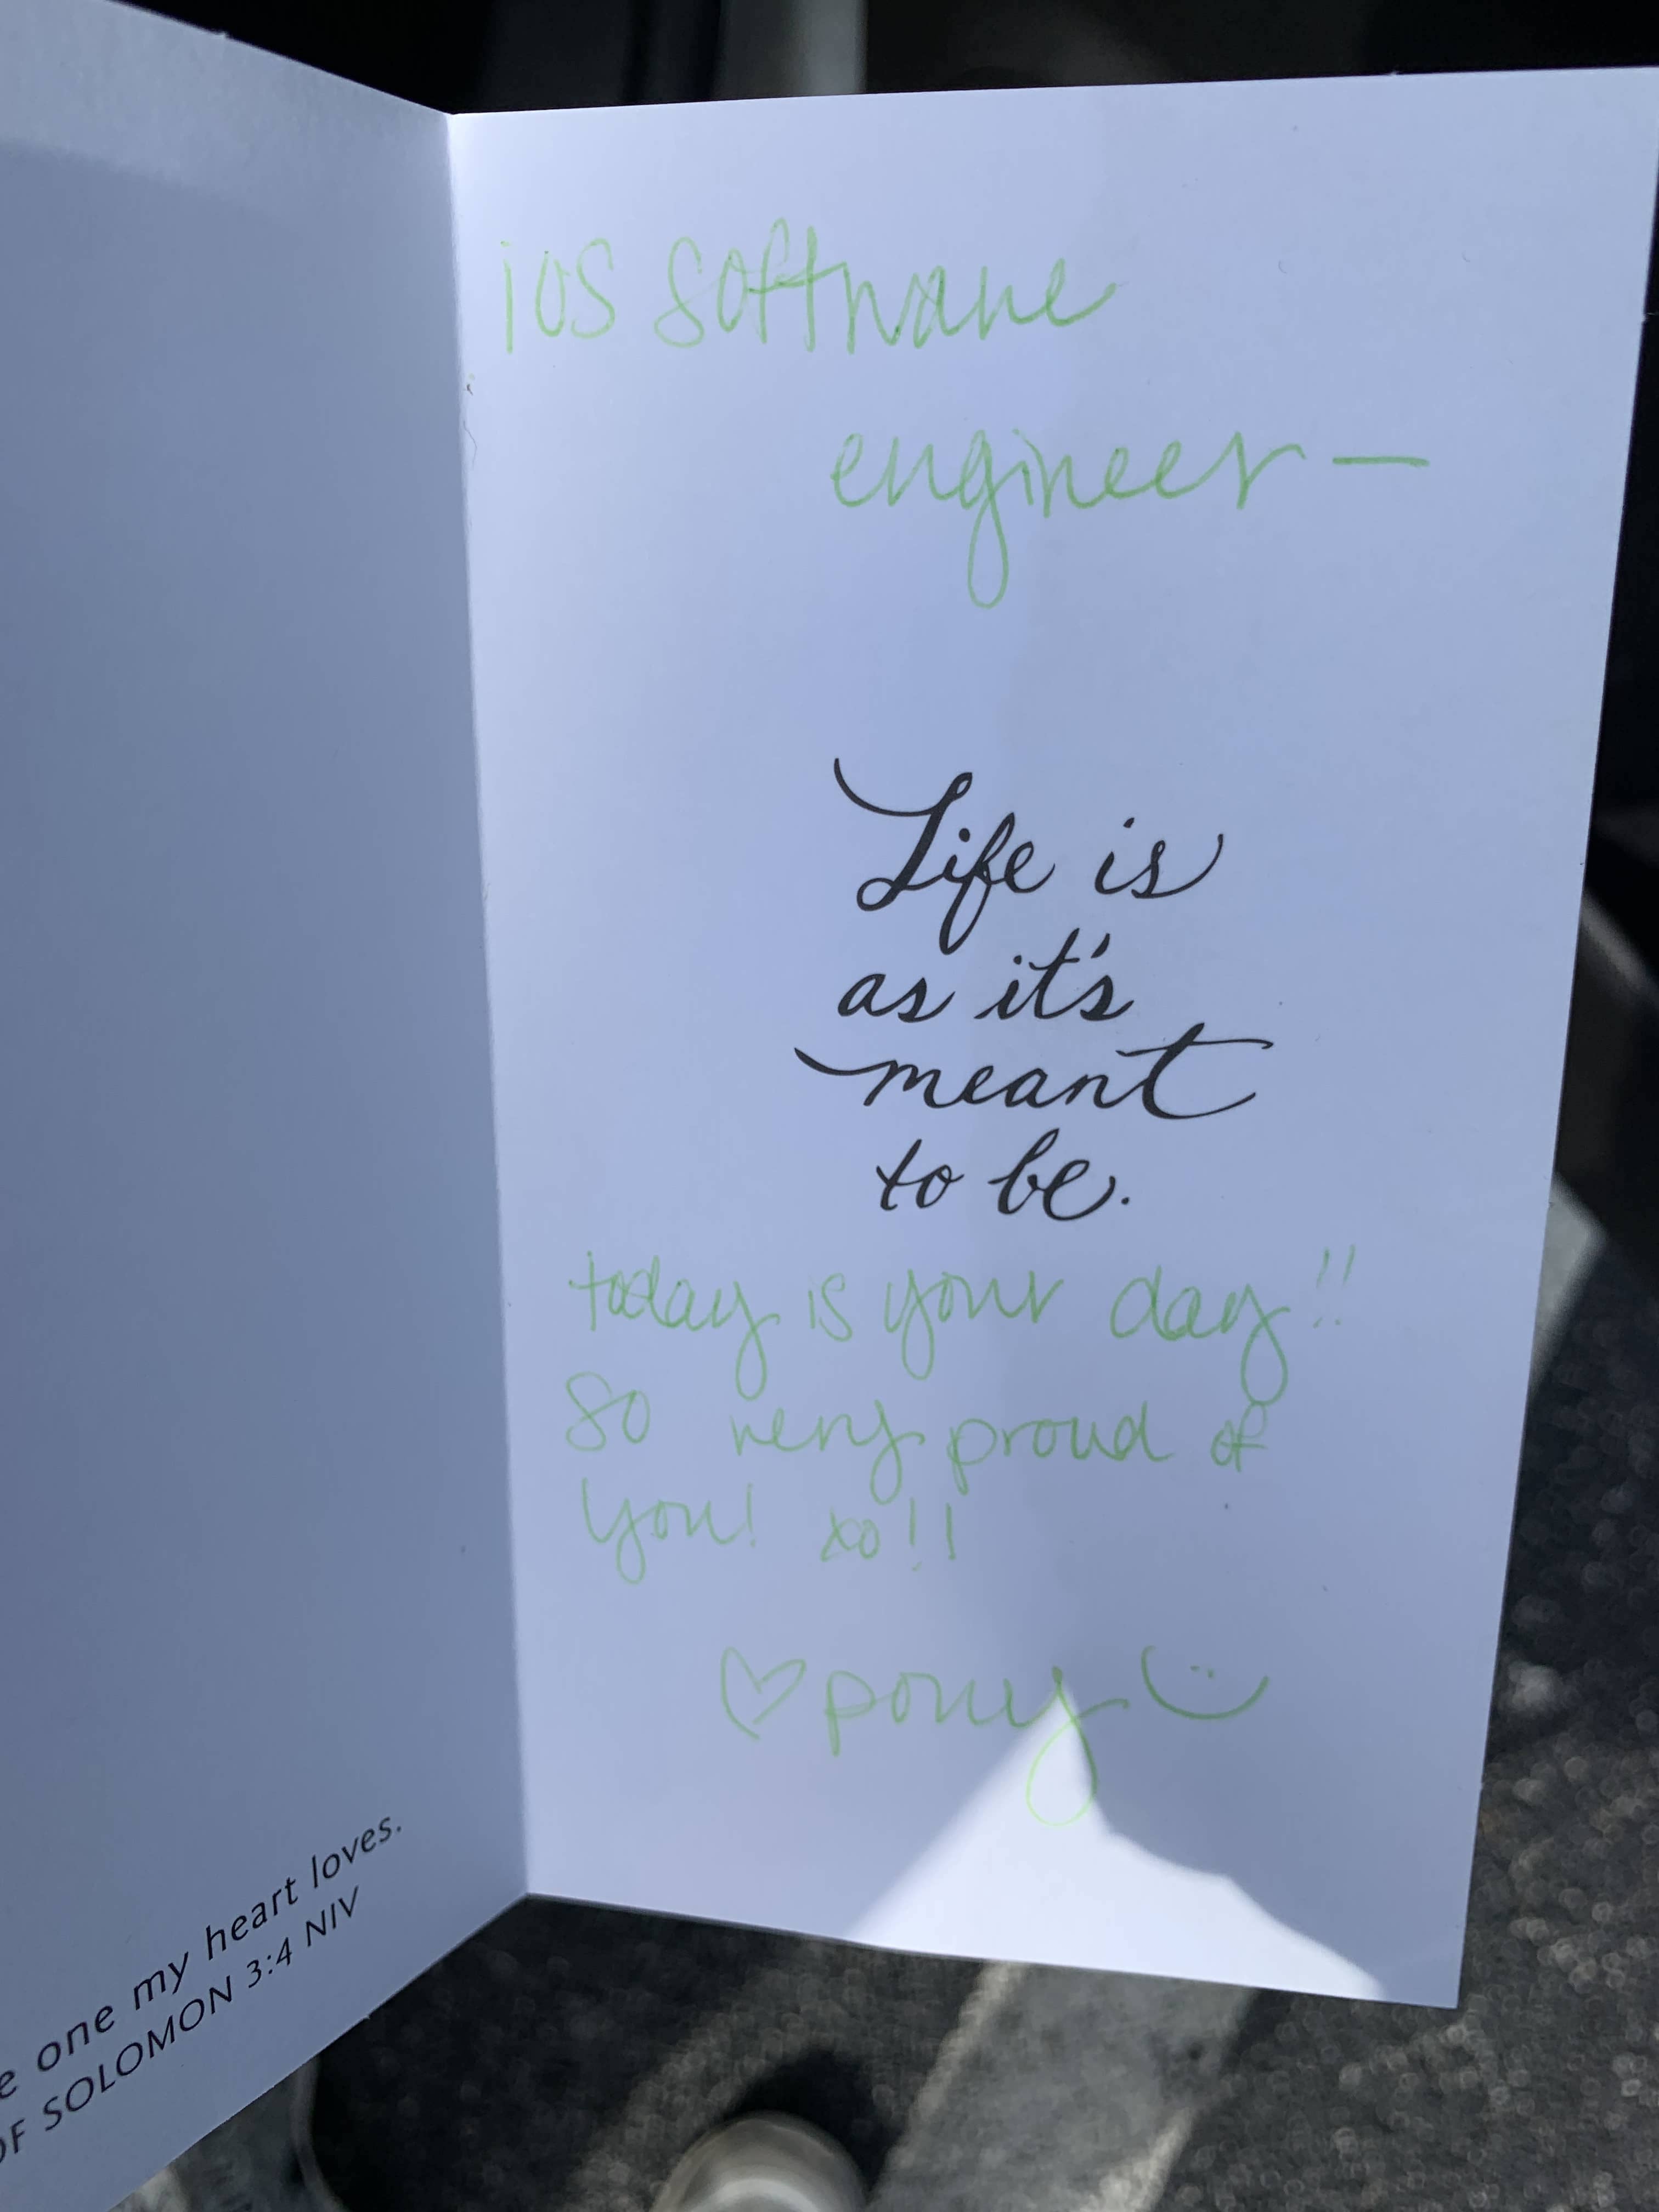 iOS software
engineer —
Life is
as it's
meant
to be.
today is your day!!
So very proud of
you! xo!!
♡ pony
one my heart loves.
OF SOLOMON 3:4 NIV